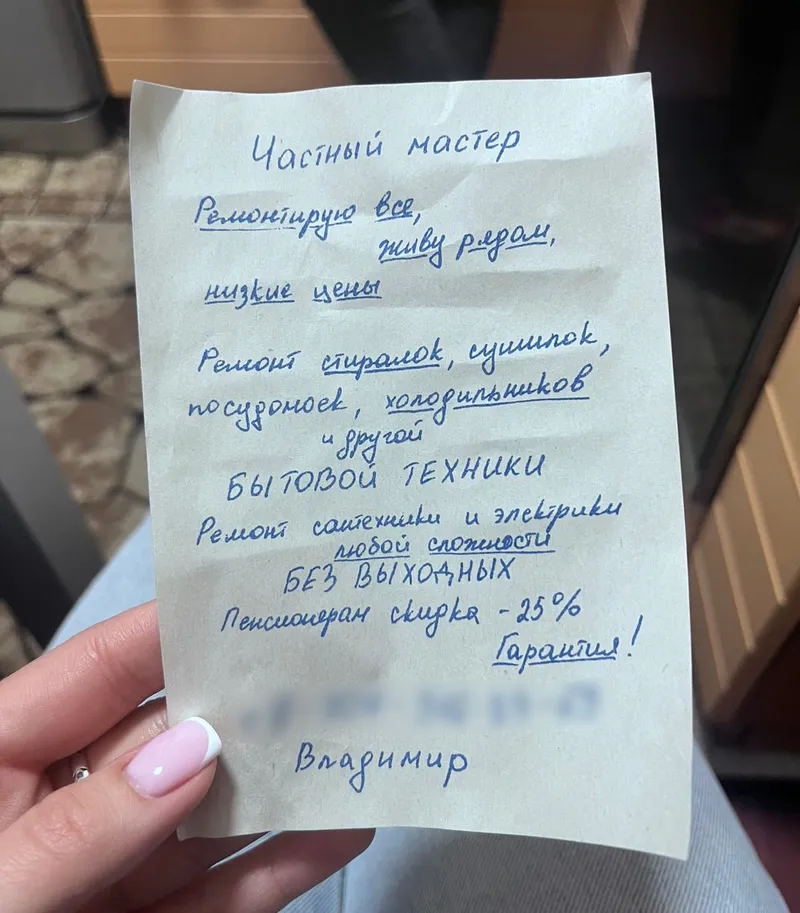 Частный мастер
Ремонтирую все,
живу рядом,
низкие цены
Ремонт стиралок, сушилок,
посудомоек, холодильников
и другой
БЫТОВОЙ ТЕХНИКИ
Ремонт сантехники и электрики
любой сложности
БЕЗ ВЫХОДНЫХ
Пенсионерам скидка -25%
Гарантия!
Владимир